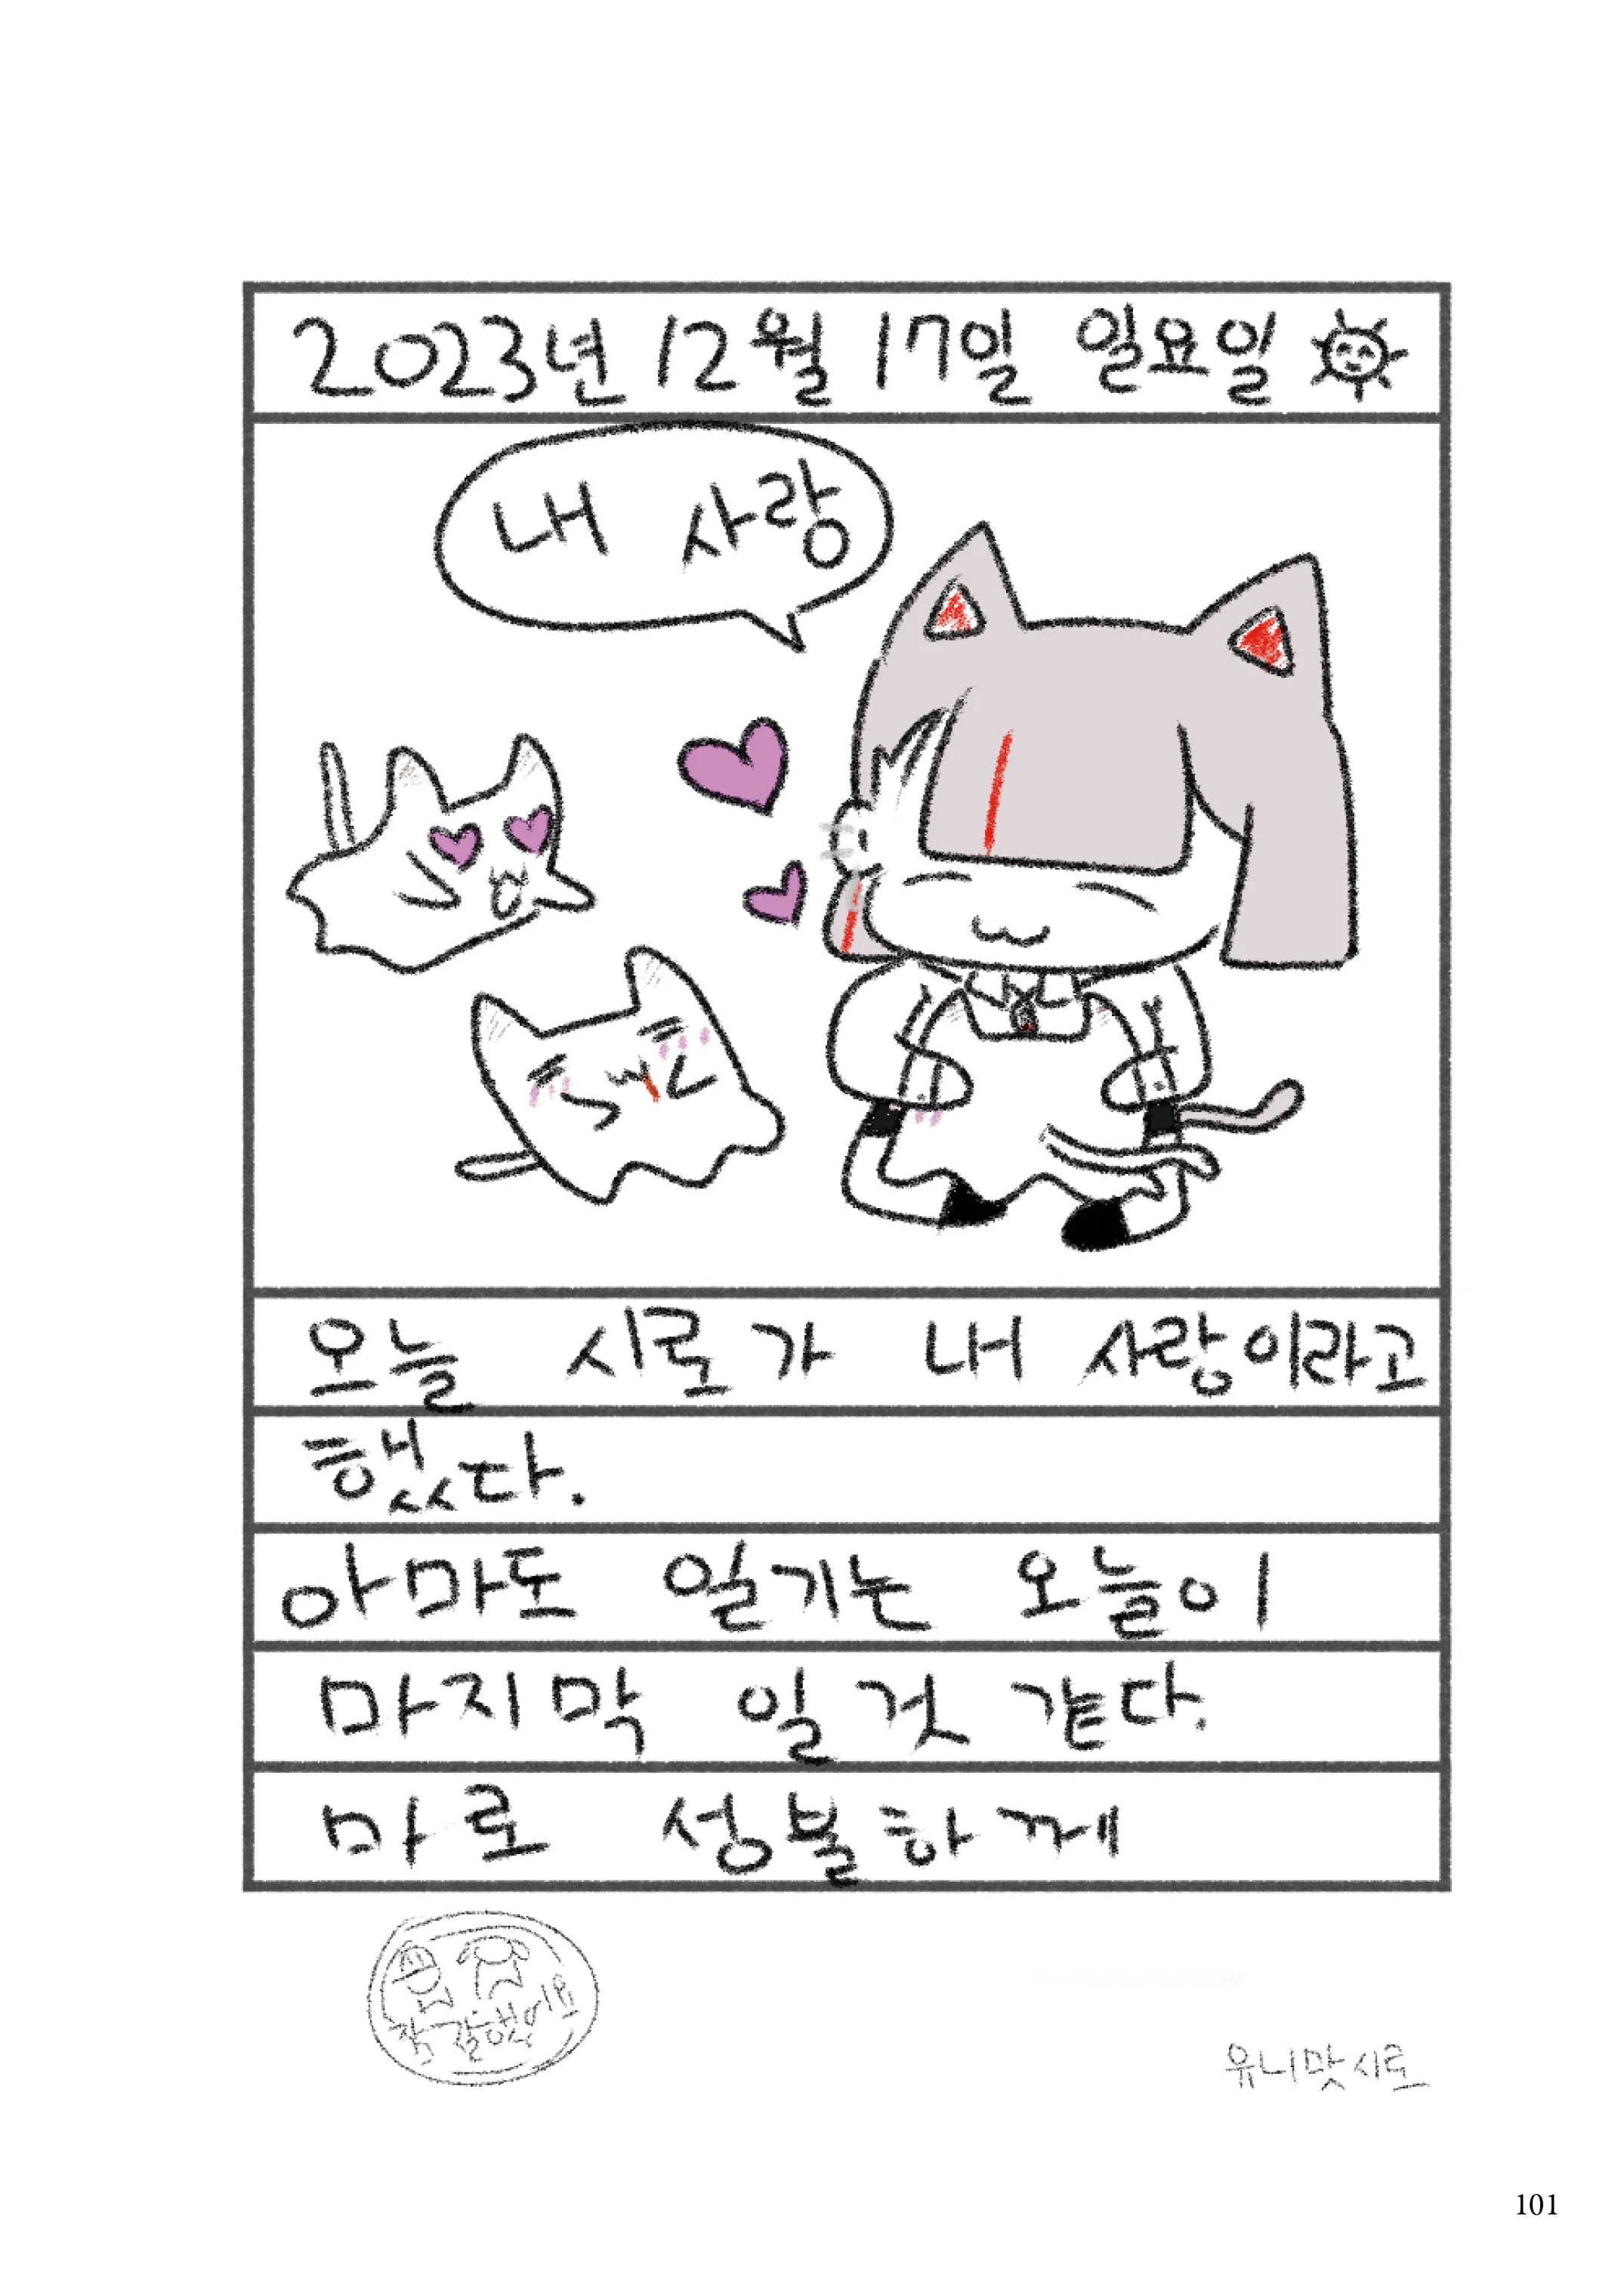 2023년 12월 17일 일요일
내 사랑
오늘 시로가 내 사랑이라고
했다.
아마도 일기는 오늘이
마지막 일 것 같다.
마로 성불하께
참 잘했어요
유니맛시로
101